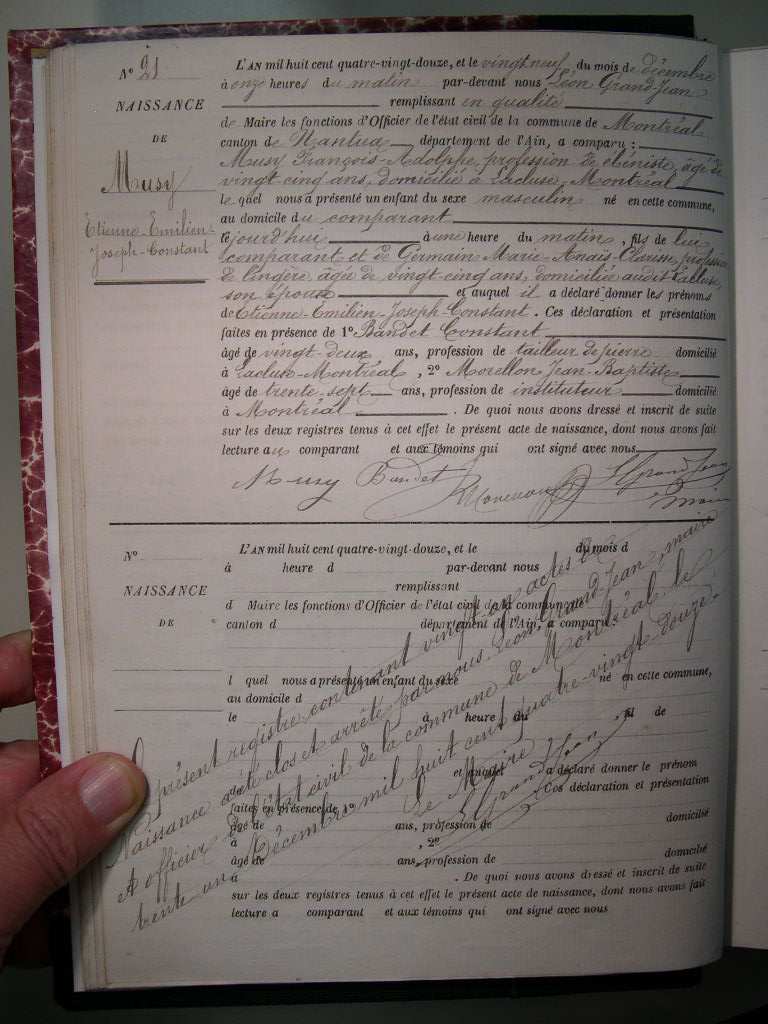 N° 21
NAISSANCE
DE
Musy
Etienne-Emilien-
Joseph-Constant
L'AN mil huit cent quatre-vingt-douze, et le vingt neuf du mois de décembre
à onze heures du matin par-devant nous Léon Grand-Jean
remplissant en qualité
de Maire les fonctions d'Officier de l'état civil de la commune de Montréal
canton de Nantua département de l'Ain, a comparu :
Musy François-Adolphe, profession de ébéniste, âgé de
vingt cinq ans, domicilié à Lacluse, Montréal
lequel nous a présenté un enfant du sexe masculin né en cette commune,
au domicile du comparant
le jourd'hui à une heure du matin, fils de lui
comparant et de Germain Marie-Anaïs-Clarisse, profession
de lingère, âgée de vingt-cinq ans, domiciliée audit Lacluse,
son épouse et auquel il a déclaré donner les prénoms
de Etienne-Emilien-Joseph-Constant. Ces déclaration et présentation
faites en présence de 1° Bandet Constant
âgé de vingt-deux ans, profession de tailleur de pierre domicilié
à Lacluse-Montréal, 2° Morellon Jean-Baptiste
âgé de trente-sept ans, profession de instituteur domicilié
à Montréal. De quoi nous avons dressé et inscrit de suite
sur les deux registres tenus à cet effet le présent acte de naissance, dont nous avons fait
lecture au comparant et aux témoins qui ont signé avec nous
Musy Bandet LGrandJean
maire
N°
NAISSANCE
DE
L'AN mil huit cent quatre-vingt-douze, et le du mois d
à heure d par-devant nous
remplissant
d Maire les fonctions d'Officier de l'état civil de la commune de
canton d département de l'Ain, a comparu :
l quel nous a présenté un enfant du sexe né en cette commune,
au domicile d
le à heure du , fil de
et auquel a déclaré donner le prénom
de Ces déclaration et présentation
faites en présence de 1°
âgé de ans, profession de domicilié
à , 2°
âgé de ans, profession de domicilié
à . De quoi nous avons dressé et inscrit de suite
sur les deux registres tenus à cet effet le présent acte de naissance, dont nous avons fait
lecture a comparant et aux témoins qui ont signé avec nous
Le présent registre contenant vingt un actes de
Naissance a été clos et arrêté par nous Léon Grand-Jean, maire
et officier de l'état civil de la commune de Montréal le
trente un Décembre mil huit cent quatre-vingt douze.
Le Maire
LGrandJean